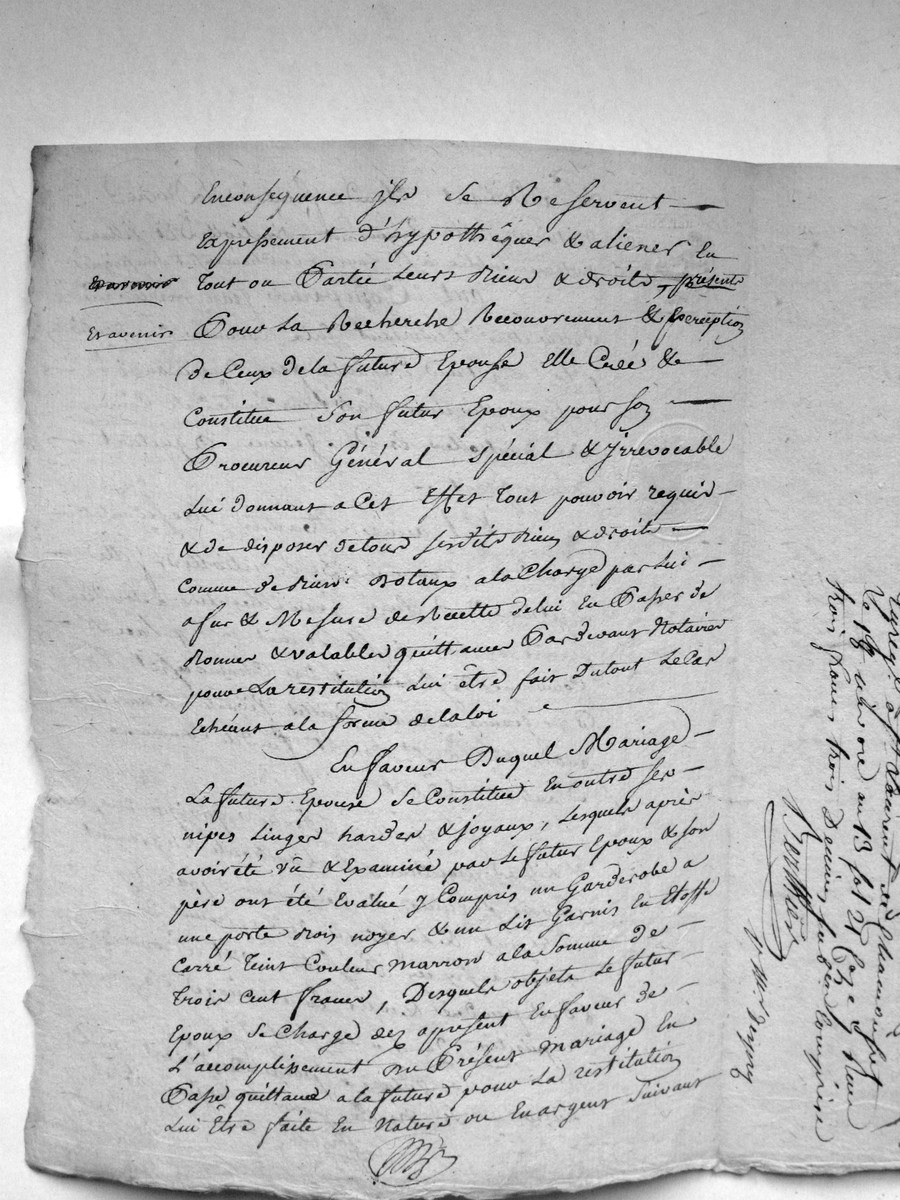 Enconséquence ils se Reservent
Expressement d'hypothêquer & aliener En
tout ou Partie Leurs Biens & droits, présents
Et avenir
Pour La Recherche Recouvrement & perception
de Ceux de la future Epouse Elle Créé &
Constitue Son futur Epoux pour son
Procureur Général spécial & jrrevocable
Lui donnant a Cet Effet tout pouvoir requis
& de disposer de tous sesdits Biens & droits
Comme de Biens Dotaux a la Charge par Lui
a fur & Mesure de Recette de lui En Passer de
Bonnes & valables quittances Pardevant Notaires
pour La restitution Lui être fait Dutout Le Cas
Echéant a la forme de la loi
En faveur Duquel Mariage
La future Epouse se Constitue En outre ses
nipes Linges hardes & joyaux, Lesquels après
avoir été vû & Examiné par Le futur Epoux & son
père ont été Evalué y Compris un Garderobe a
une porte Bois noyer & un Lit Garnis En Etoffe
Carré teint Couleur marron a la Somme de
trois Cent francs, Desquels objets Le futur
Epoux se Charge dez apresent En faveur de
L'accomplissement du Présent mariage En
Passe quittance a la future pour La restitution
Lui Être faite En Nature ou En argent Suivant
Enregé à St Laurent de Chamousset
Le an 13 fol
trois francs trois Decimes subon Comprise